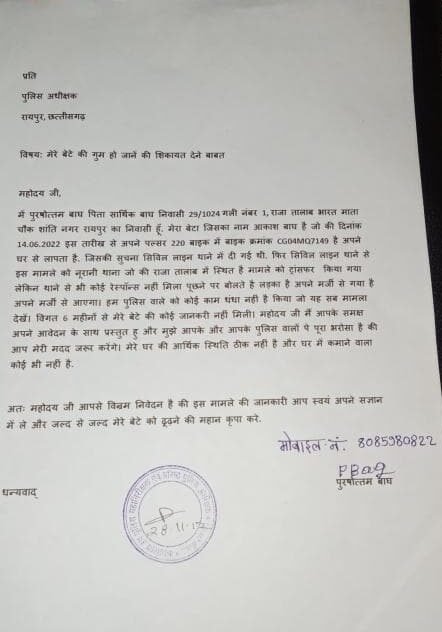 प्रति
पुलिस अधीक्षक
रायपुर, छत्तीसगढ़
विषय: मेरे बेटे की गुम हो जानें की शिकायत देने बाबत
महोदय जी,
में पुरषोत्तम बाघ पिता सार्थिक बाघ निवासी 29/1024 गली नंबर 1, राजा तालाब भारत माता
चौक शांति नगर रायपुर का निवासी हूँ. मेरा बेटा जिसका नाम आकाश बाघ है जो की दिनांक
14.06.2022 इस तारीख से अपने पल्सर 220 बाइक में बाइक क्रमांक CG04MQ7149 है अपने
घर से लापता है. जिसकी सुचना सिविल लाइन थाने में दी गई थी. फिर सिविल लाइन थाने से
इस मामले को नूरानी थाना जो की राजा तालाब में स्थित है मामले को ट्रांसफर किया गया
लेकिन थाने से भी कोई रेस्पॉन्स नहीं मिला पूछने पर बोलते है लड़का है अपने मर्जी से गया है
अपने मर्जी से आएगा। हम पुलिस वाले को कोई काम धंधा नहीं है किया जो यह सब मामला
देखें। विगत 6 महीनों से मेरे बेटे की कोई जानकरी नहीं मिली। महोदय जी मैं आपके समक्ष
अपने आवेदन के साथ प्रस्तुत हु और मुझे आपके और आपके पुलिस वालों पे पूरा भरोसा है की
आप मेरी मदद जरूर करेंगे। मेरे घर की आर्थिक स्थिति ठीक नहीं है और घर में कमाने वाला
कोई भी नहीं है.
अतः महोदय जी आपसे विनम्र निवेदन है की इस मामले की जानकारी आप स्वयं अपने सज्ञान
में ले और जल्द से जल्द मेरे बेटे को ढूढ़ने की महान कृपा करे.
मोबाइल नं. 8085980822
PBag
पुरषोत्तम बाघ
धन्यवाद्
28.11